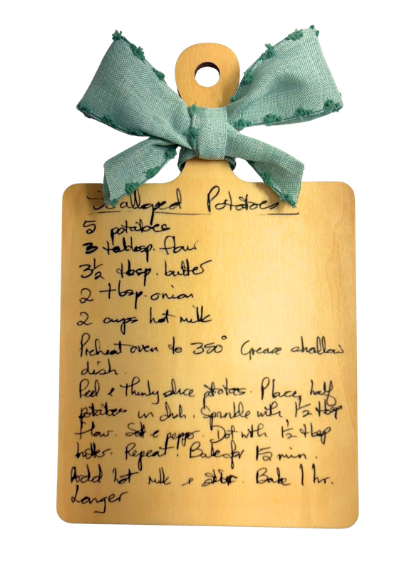 Scalloped Potatoes
5 potatoes
3 tablesp. flour
3½ tbsp. butter
2 tbsp. onion
2 cups hot milk
Preheat oven to 350° Grease shallow
dish.
Peel & Thinly slice potatoes. Place half
potatoes in dish. Sprinkle with 1½ tbsp
flour. Salt & pepper. Dot with 1½ tbsp
butter. Repeat! Bake for 15 min.
Add hot milk & Bake 1 hr.
longer